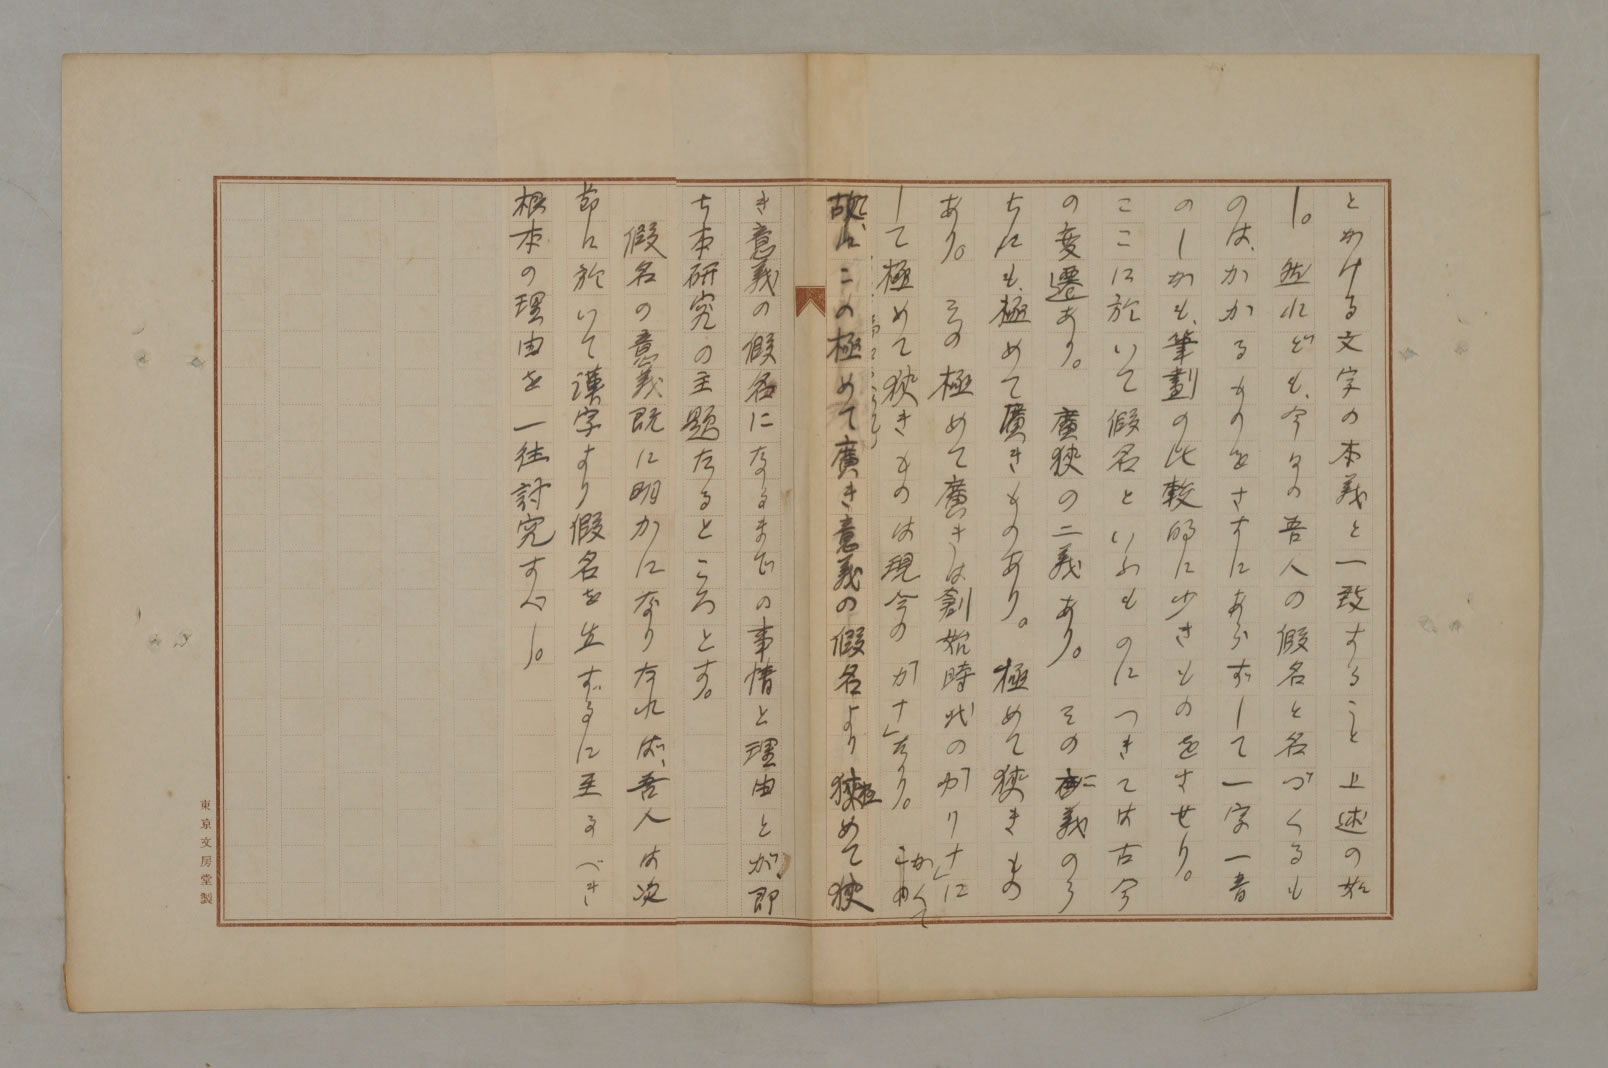 とわける文字の本義と一致すること上述の如
し。然れども、今日の吾人の假名と名づくるも
のは、かかるものをさすにあらずして一字一音
のしかも、筆劃の比較的に少きものをさせり。
ここに於いて假名といふものにつきては古今
の変遷あり。廣狹の二義あり。その二義のう
ちにも、極めて廣きものあり。極めて狹きもの
あり。その極めて廣きは創始時代のカリナに
して極めて狹きものは現今の「カナ」なり。かくて
この極めて廣き意義の假名より極めて狹
き意義の假名になるまでの事情と理由とが、即
ち本研究の主題たるところとす。
假名の意義既に明かになりたれば、吾人は次
節に於いて漢字より假名を生ずるに至るべき
根本の理由を一往討究すべし。
東京文房堂製